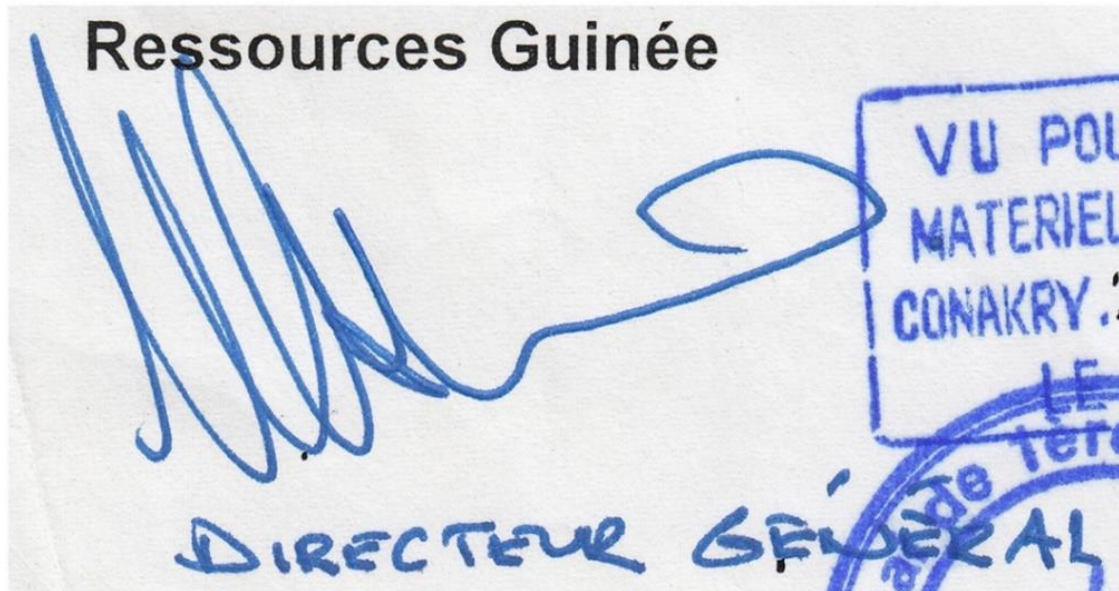 Ressources Guinée
VU
MATERIEL
CONAKRY.
LE
de
DIRECTEUR GÉNÉRAL